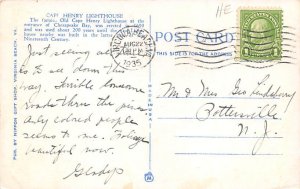 HE
CAPE HENRY LIGHTHOUSE
The famous Old Cape Henry Lighthouse at the
entrance of Chesapeake Bay, was erected in 1791
and was used about 200 years until the
house nearby was built in the
Nineteenth Century.
AUG 22
1935
POST CARD
THIS SIDE IS FOR THE ADDRESS
Just seeing all
to be seen down this
way. Terrible lonesome
roads thru the pines
only colored people
seems to me. Foliage
beautiful now.
Gladys
Mr & Mrs Geo
Pottersville
N. J.
PUB. BY NIPPON GIFT SHOP, VIRGINIA BEACH